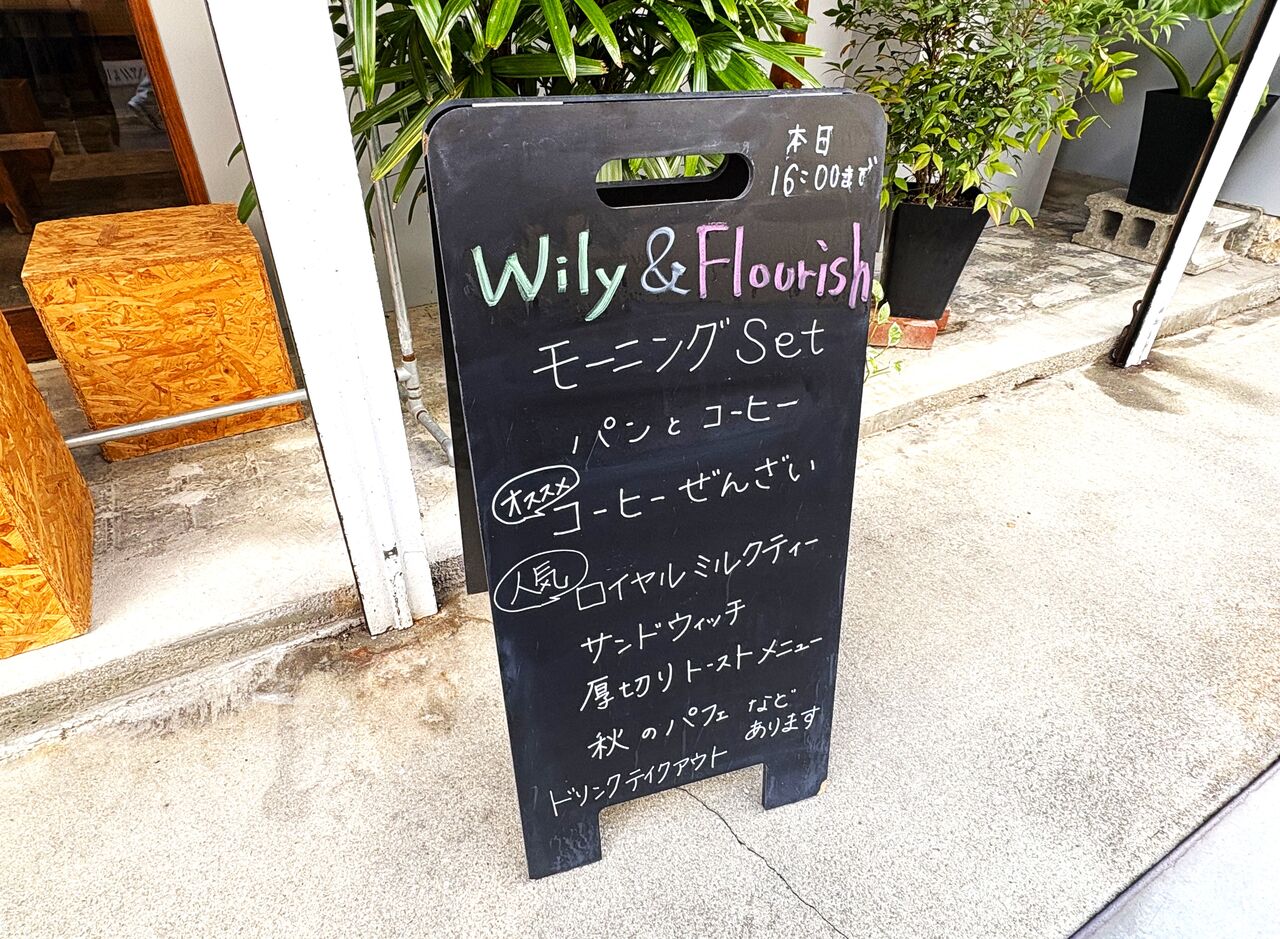 本日
16:00まで
Wily & Flourish
モーニングSet
パンとコーヒー
オススメ
コーヒーぜんざい
人気
ロイヤルミルクティー
サンドウィッチ
厚切りトーストメニュー
秋のパフェ など
あります
ドリンクテイクアウト